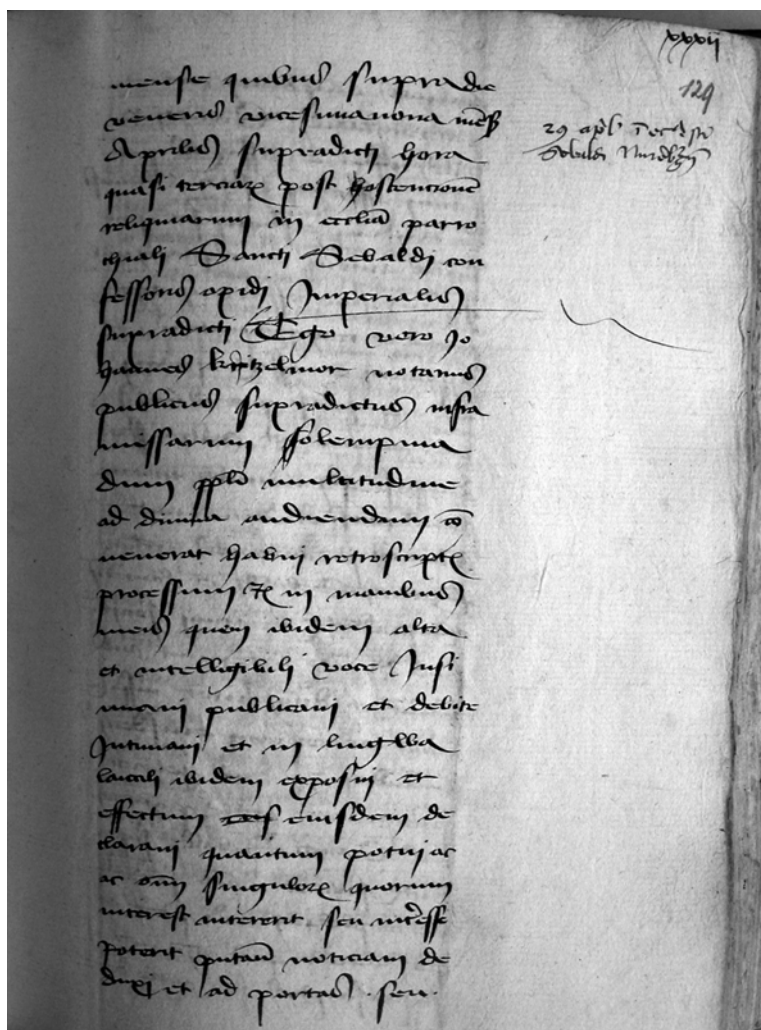 xxxii
129
29 april
Sebaldi
mense quibus supra die
veneris vicesimanona mens
Aprilis supradicti hora
quasi terciarum post hostencionem
reliquiarum in ecclia parro
chiali Sancti Sebaldi con
fessoris opidi Imperialis
supradicti Ego vero Jo
hannes notarius
publicus supradictus infra
missarum solempnia
dum ppli multitudine
ad divina audiendum con
venerat habui retroscriptum
processum in manibus
meis quem ibidem alta
et intelligibili voce Insi
nuavi publicavi et debite
Intimavi et in lingwa
laicali ibidem exposui et
effectum eiusdem de
claravi quantum potui ac
ac omn singulorum quorum
interest intererit seu interesse
poterit noticiam de
duxi et ad portas seu